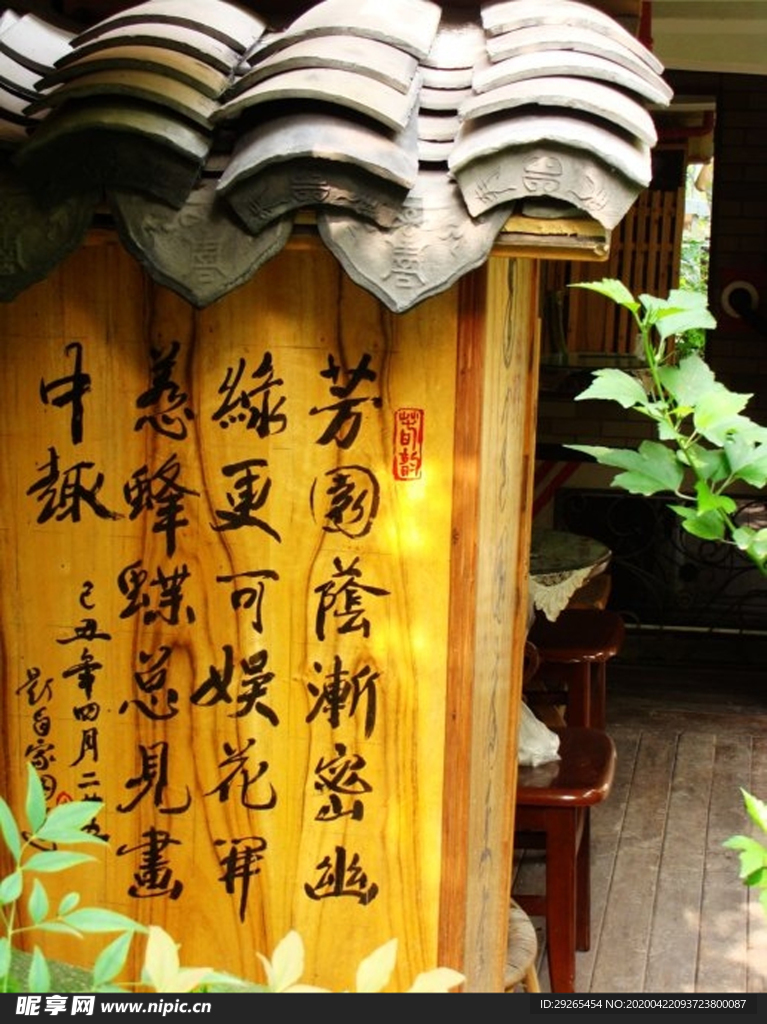 芳園蔭漸密幽
綠更可娛花開
惹蜂蝶总見畫
中趣
己丑年四月二
昵享网 www.nipic.cn
ID:29265454 NO:20200422093723800087